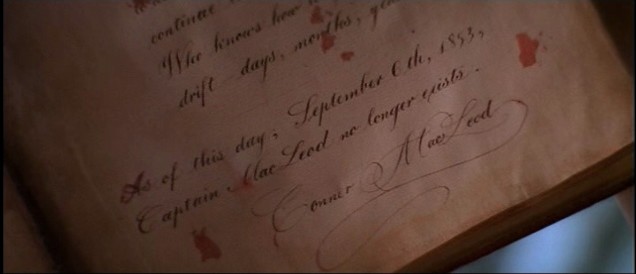 continue
Who knows how
drift days, months, years
As of this day, September 6th, 1853,
Captain MacLeod no longer exists.
Conner MacLeod